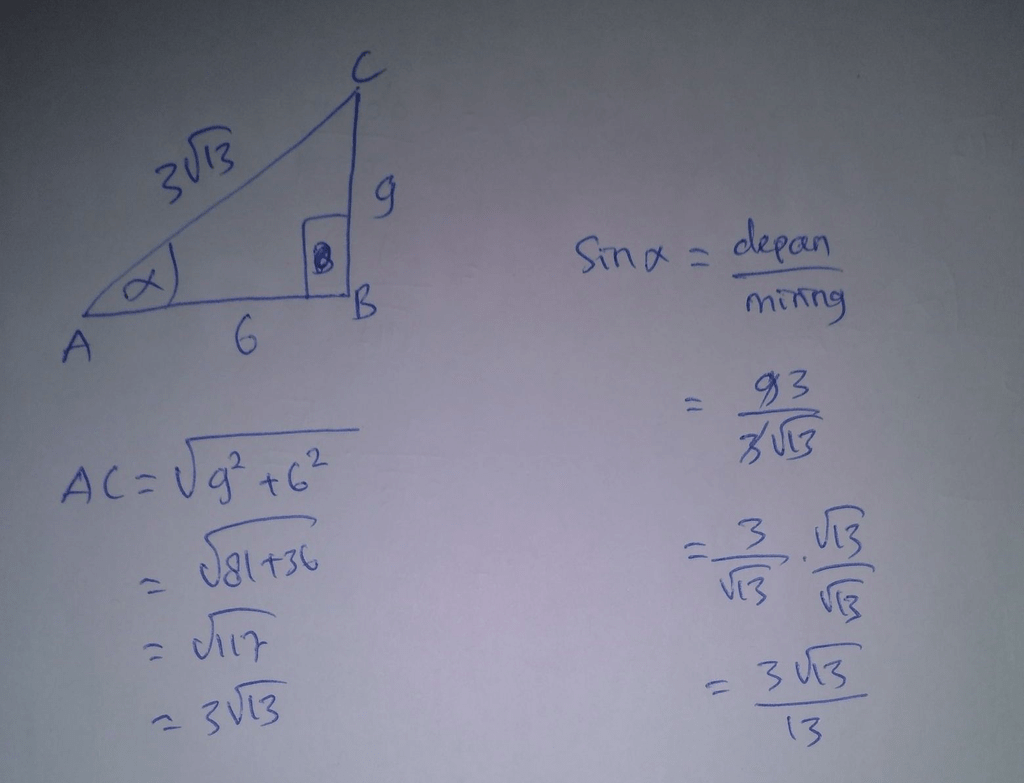 C
3√13
9
α
A
6
B
AC = √9² + 6²
= √81+36
= √117
= 3√13
Sin α = depan / miring
= 9 3 / 3√13
= 3/√13 . √13/√13
= 3√13 / 13